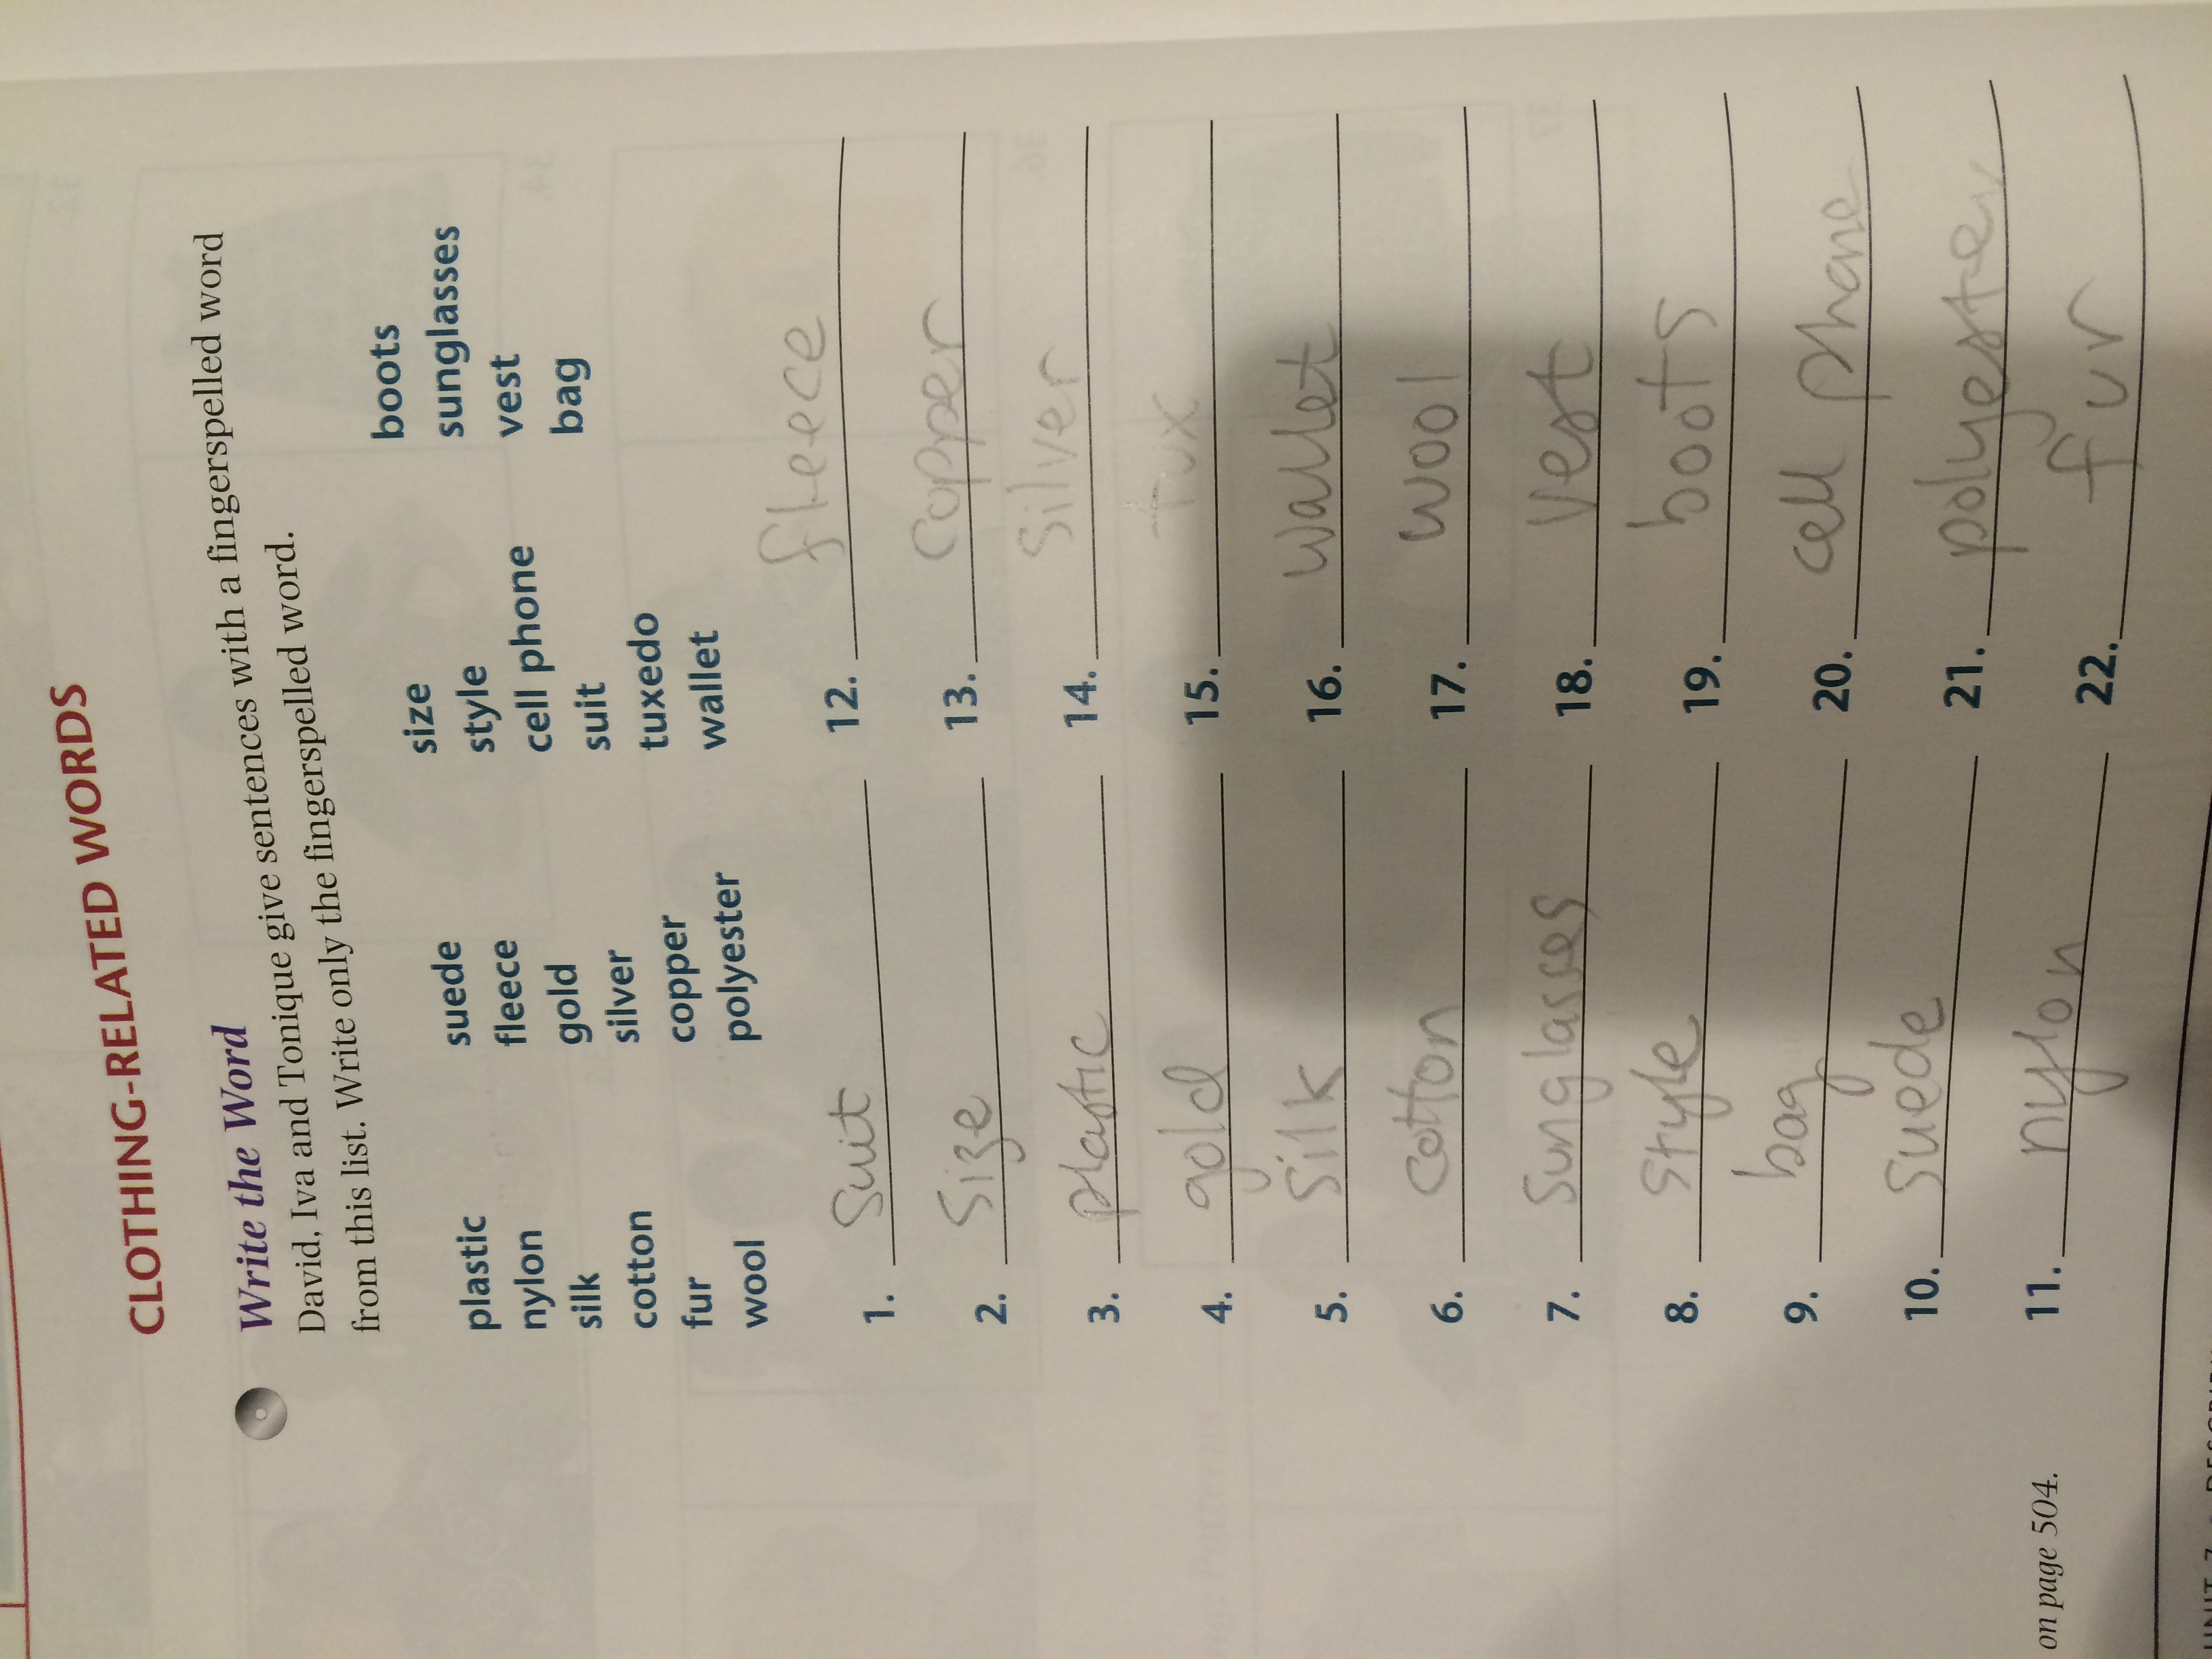 CLOTHING-RELATED WORDS
Write the Word
David, Iva and Tonique give sentences with a fingerspelled word
from this list. Write only the fingerspelled word.
plastic suede size boots
nylon fleece style sunglasses
silk gold cell phone vest
cotton silver suit bag
fur copper tuxedo
wool polyester wallet
1. Suit 12. fleece
2. Size 13. copper
3. plastic 14. Silver
4. gold 15. tux
5. Silk 16. wallet
6. cotton 17. wool
7. Sunglasses 18. vest
8. Style 19. boots
9. bag 20. cell phone
10. Suede 21. polyester
11. nylon 22. fur
on page 504.